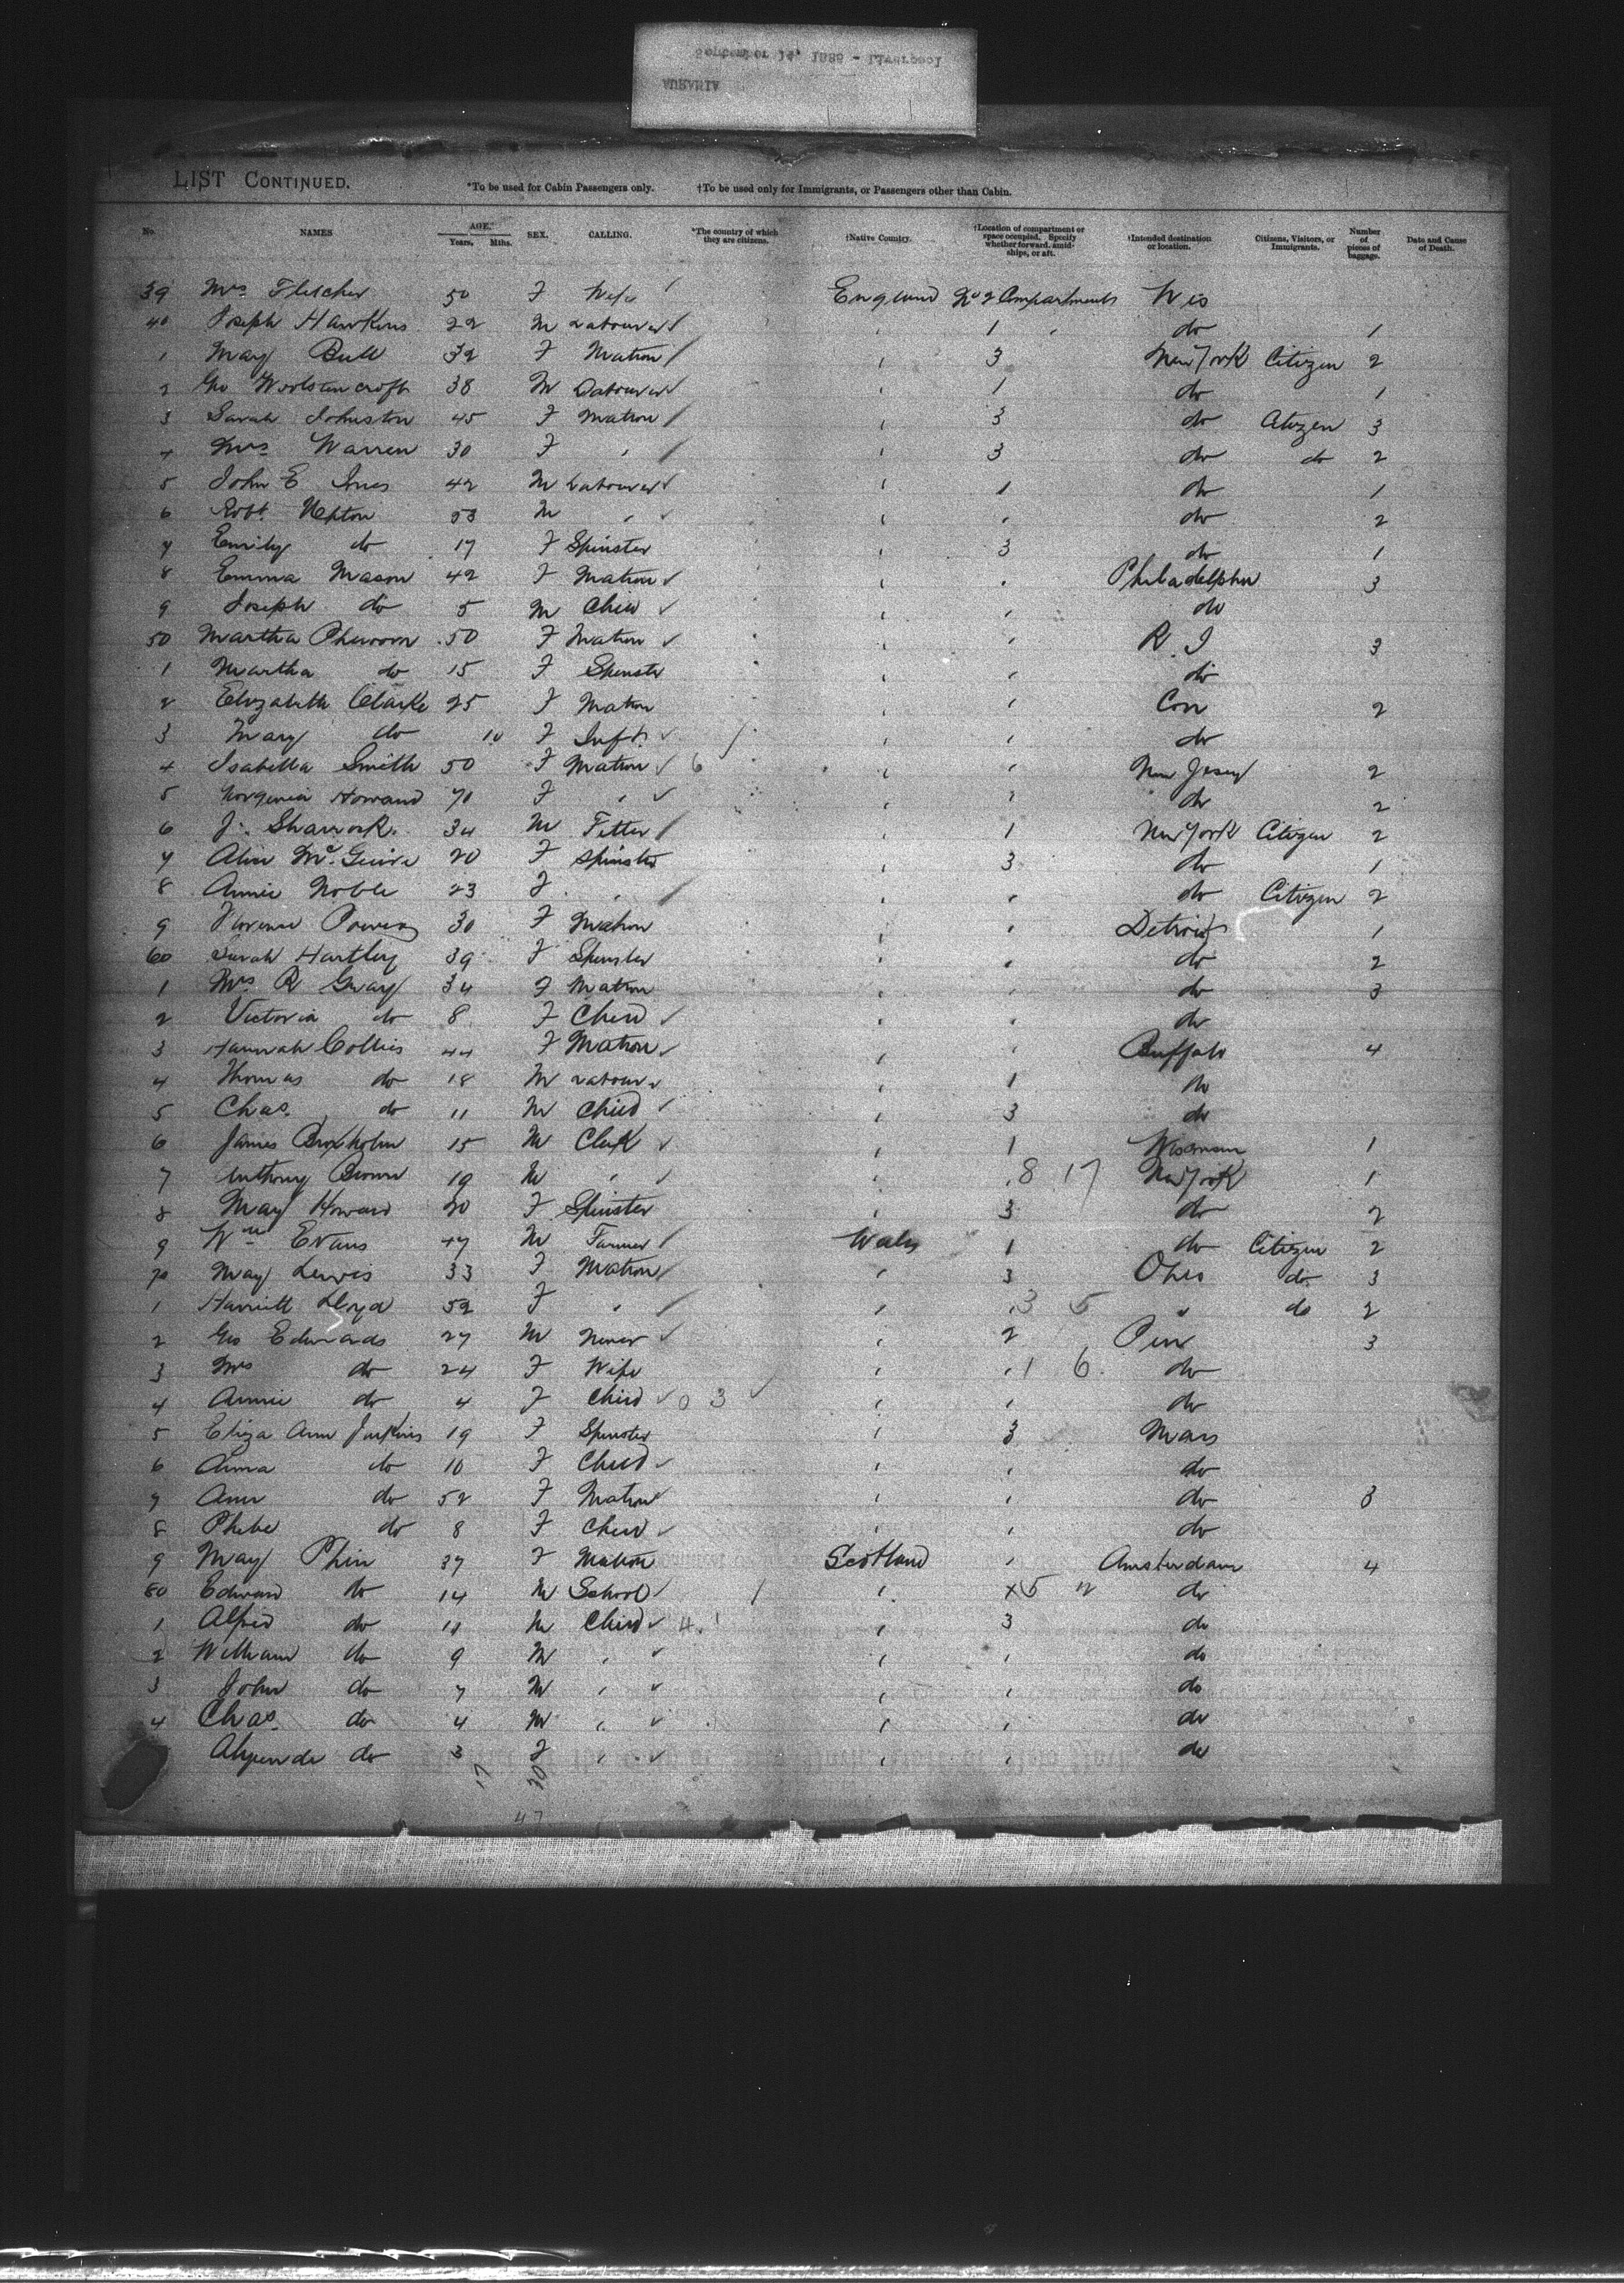 LIST CONTINUED. *To be used for Cabin Passengers only. †To be used only for Immigrants, or Passengers other than Cabin.
No NAMES AGE. Years, Mths. SEX. CALLING. *The country of which they are citizens. †Native Country. †Location of compartment or space occupied. Specify whether forward, amidships, or aft. †Intended destination or location. Citizens, Visitors, or Immigrants. Number of pieces of baggage. Date and Cause of Death.
39 Mrs Fletcher 50 F Wife England No 2 Compartments Wis
40 Joseph Hawkins 22 M Labourer 1 do 1
1 Mary Bull 32 F Matron 3 New York Citizen 2
2 Geo Woolstencroft 38 M Labourer 1 do 1
3 Sarah Johnston 45 F Matron 3 do Citizen 3
4 Mrs Warren 30 F 3 do do 2
5 John E 42 M Labourer 1 do 1
6 Robt 53 M do 2
7 Emily do 17 F Spinster 3 do 1
8 Emma Mason 42 F Matron Philadelphia 3
9 Joseph do 5 M Child do
50 Martha 50 F Matron R. I 3
1 Martha do 15 F Spinster do
2 Elizabeth Clarke 25 F Matron Con 2
3 Mary do 10 F Inft do
4 Isabella Smith 50 F Matron 6 New Jersey 2
5 Howard 70 F do 2
6 J. Sharrock 34 M Fitter 1 New York Citizen 2
7 Alice McGuire 20 F Spinster 3 do 1
8 Annie Noble 23 F do Citizen 2
9 Florence 30 F Matron Detroit 1
60 Sarah Hartley 39 F Spinster do 2
1 Mrs R Gray 34 F Matron do 3
2 Victoria do 8 F Child do
3 Hannah Collies 44 F Matron Buffalo 4
4 Thomas do 18 M Labourer 1 do
5 Chas. do 11 M Child 3 do
6 James 15 M Clerk 1 Wisconsin 1
7 Anthony Brown 19 M 8 17 New York 1
8 May Howard 20 F Spinster 3 do 2
9 Wm Evans 47 M Farmer Wales 1 do Citizen 2
70 May Lewis 33 F Matron 3 Ohio do 3
1 Harriett Lloyd 52 F 3 5 " do 2
2 Geo Edwards 27 M Miner 2 Pen 3
3 Mrs do 24 F Wife 1 6 do
4 Annie do 4 F Child 0 3 do
5 Eliza Ann Jenkins 19 F Spinster 3 Mass
6 Anna do 10 F Child do
7 Ann do 52 F Matron do 3
8 Phebe do 8 F Child do
9 May Phin 37 F Matron Scotland Amsterdam 4
80 Edward do 14 M School 5 do
1 Alfred do 11 M Child 4 3 do
2 William do 9 M do
3 John do 7 M do
4 Chas. do 4 M do
do 3 F do
17 30
47